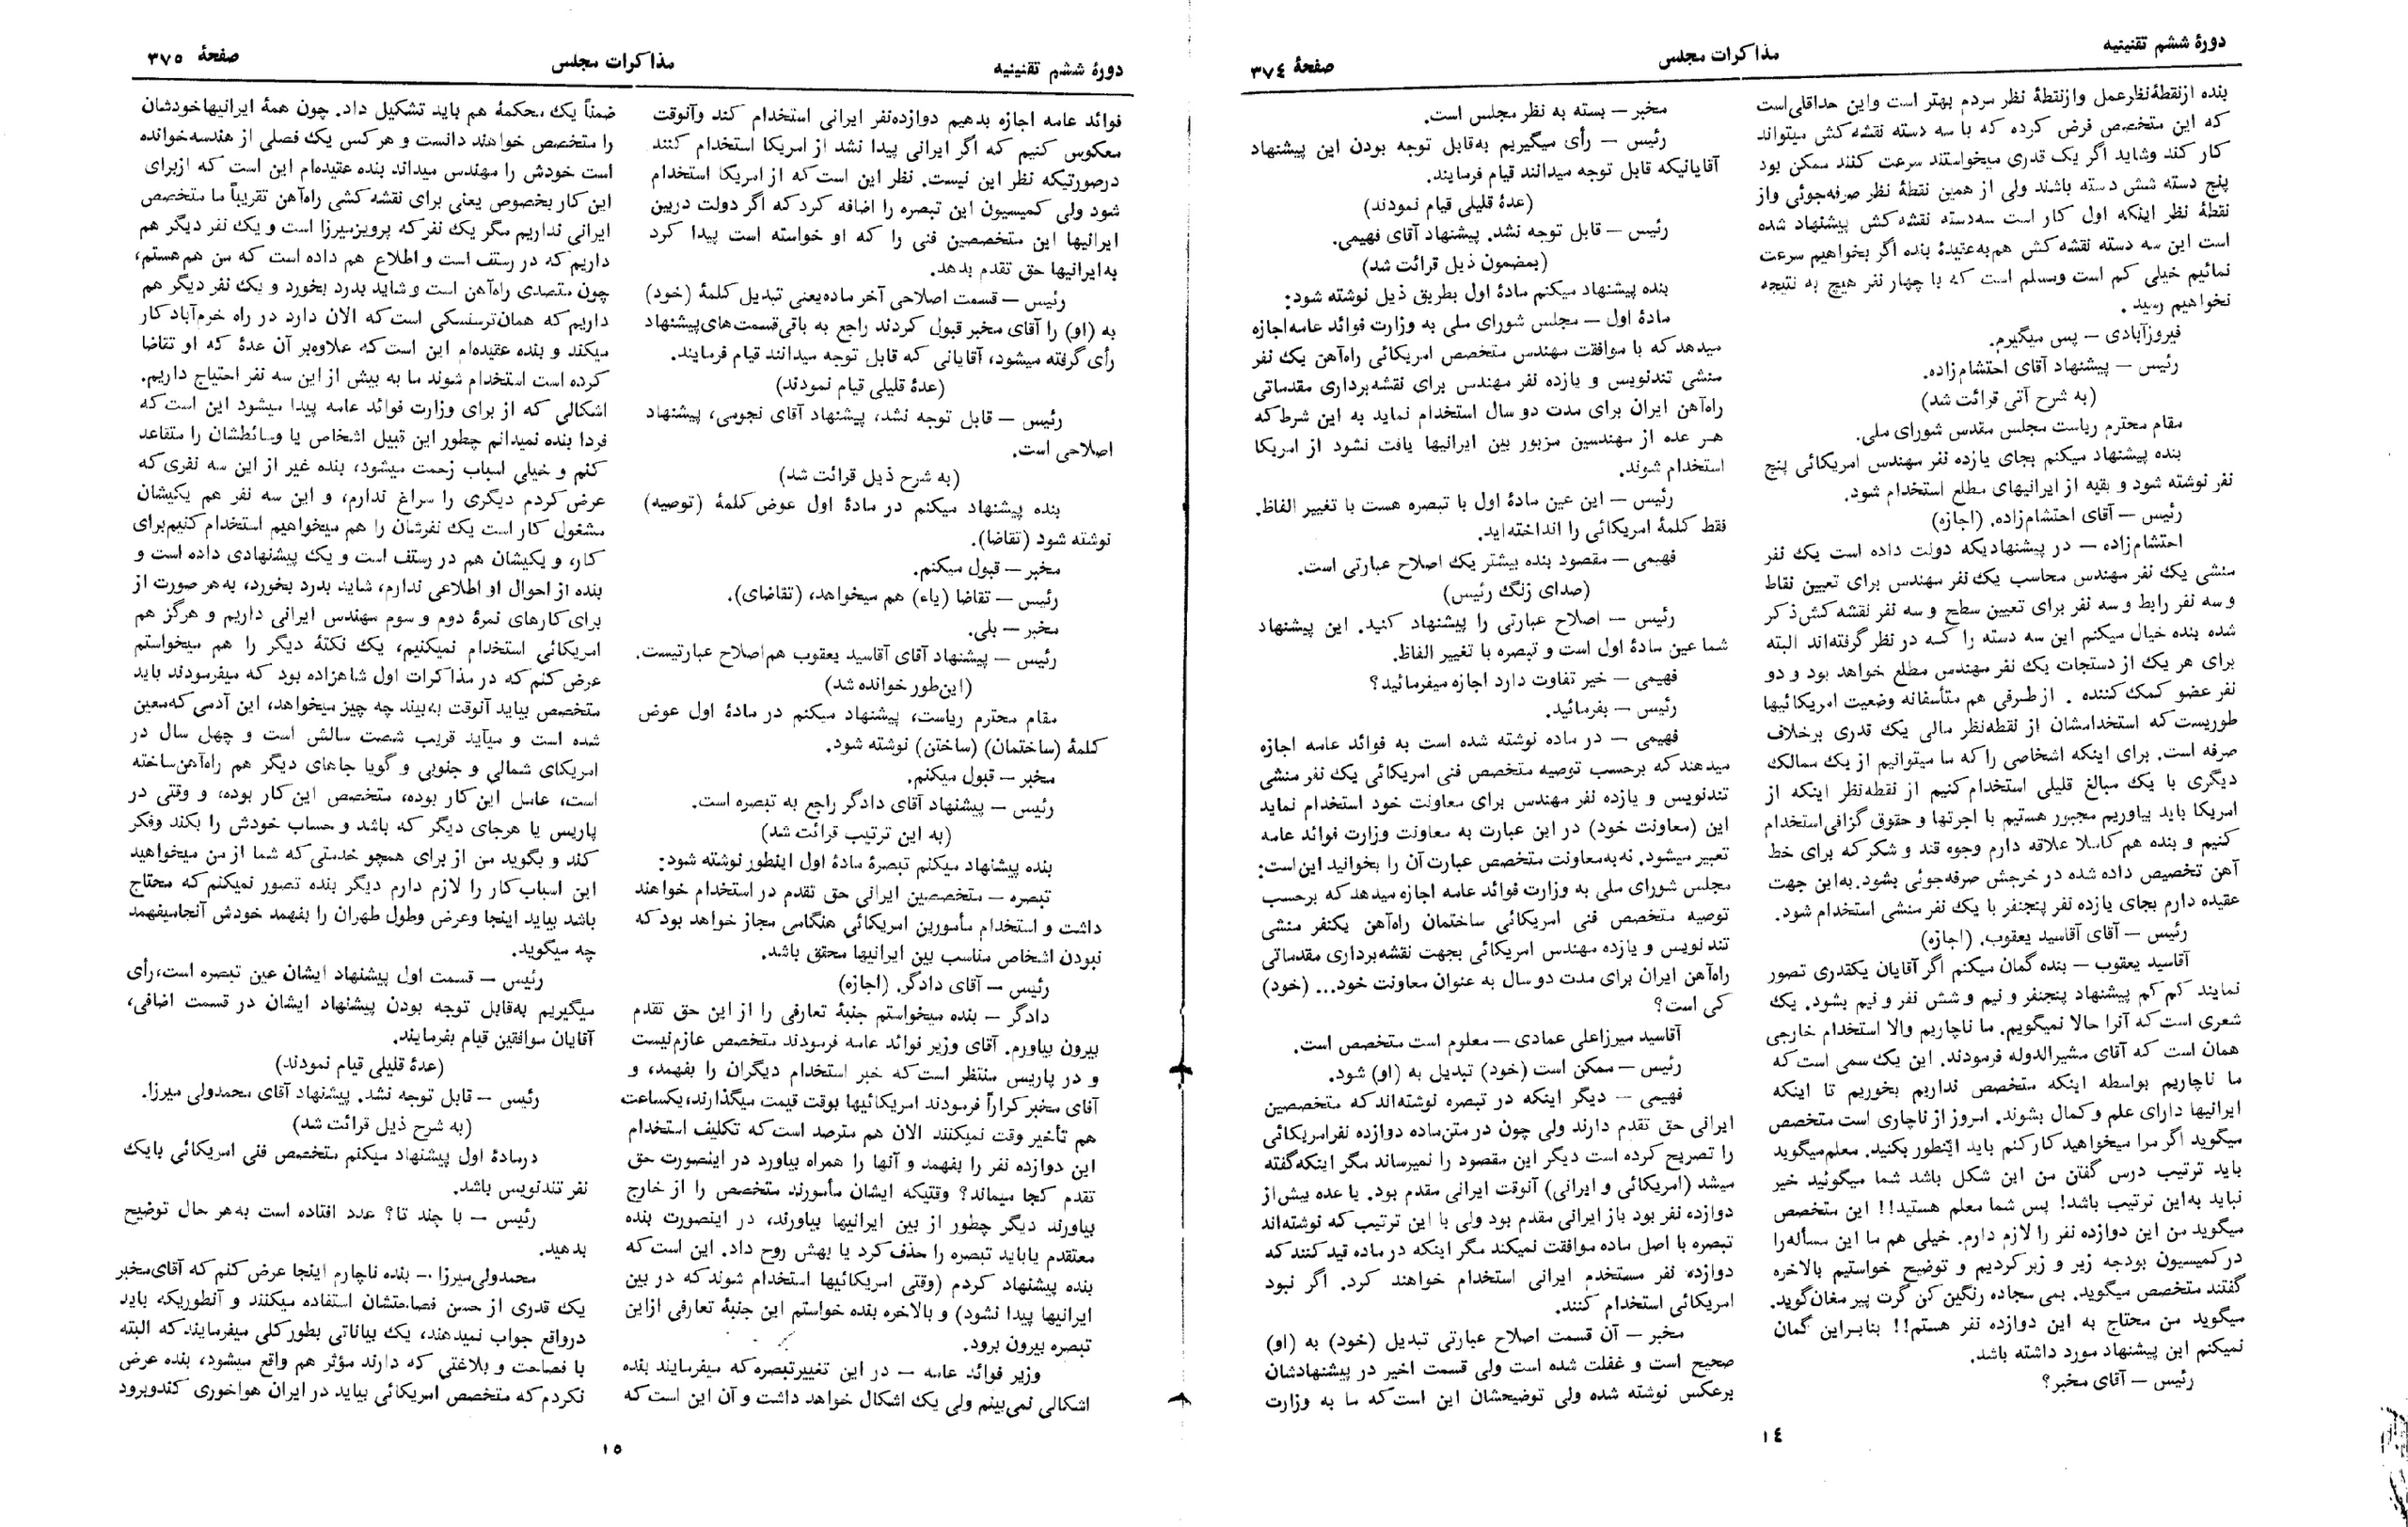 دورهٔ ششم تقنینیه
مذاکرات مجلس
صفحهٔ ۳۷۴
بنده از نقطهٔ نظر عمل و از نقطهٔ نظر مردم بهتر است و این حداقلی است
که این متخصص فرض کرده که با سه دسته نقشه کش میتواند
کار کند و شاید اگر یک قدری میخواستند سرعت کنند ممکن بود
پنج دسته شش دسته باشند ولی از همین نقطهٔ نظر صرفه‌جوئی و از
نقطهٔ نظر اینکه اول کار است سه‌دسته نقشه کش پیشنهاد شده
است این سه دسته نقشه کش هم به عقیدهٔ بنده اگر بخواهیم سرعت
نمائیم خیلی کم است و مسلم است که با چهار نفر هیچ به نتیجه
نخواهیم رسید .
فیروزآبادی — پس میگیرم.
رئیس — پیشنهاد آقای احتشام‌زاده.
(به شرح آتی قرائت شد)
مقام محترم ریاست مجلس مقدس شورای ملی.
بنده پیشنهاد میکنم بجای یازده نفر مهندس امریکائی پنج
نفر نوشته شود و بقیه از ایرانیهای مطلع استخدام شود.
رئیس — آقای احتشام‌زاده. (اجازه)
احتشام‌زاده — در پیشنهادیکه دولت داده است یک نفر
منشی یک نفر مهندس محاسب یک نفر مهندس برای تعیین نقاط
و سه نفر رابط و سه نفر برای تعیین سطح و سه نفر نقشه کش ذکر
شده بنده خیال میکنم این سه دسته را که در نظر گرفته‌اند البته
برای هر یک از دستجات یک نفر مهندس مطلع خواهد بود و دو
نفر عضو کمک کننده . از طرفی هم متأسفانه وضعیت امریکائیها
طوریست که استخدامشان از نقطه‌نظر مالی یک قدری برخلاف
صرفه است. برای اینکه اشخاصی را که ما میتوانیم از یک ممالک
دیگری با یک مبالغ قلیلی استخدام کنیم از نقطه‌نظر اینکه از
امریکا باید بیاوریم مجبور هستیم با اجرتها و حقوق گزافی استخدام
کنیم و بنده هم کاملا علاقه دارم وجوه قند و شکر که برای خط
آهن تخصیص داده شده در خرجش صرفه‌جوئی بشود. به این جهت
عقیده دارم بجای یازده نفر پنجنفر با یک نفر منشی استخدام شود.
رئیس — آقای آقاسید یعقوب. (اجازه)
آقاسید یعقوب — بنده گمان میکنم اگر آقایان یکقدری تصور
نمایند کم کم پیشنهاد پنجنفر و نیم و شش نفر و نیم بشود. یک
شعری است که آنرا حالا نمیگویم. ما ناچاریم والا استخدام خارجی
همان است که آقای مشیرالدوله فرمودند. این یک سمی است که
ما ناچاریم بواسطه اینکه متخصص نداریم بخوریم تا اینکه
ایرانیها دارای علم و کمال بشوند. امروز از ناچاری است متخصص
میگوید اگر مرا میخواهید کار کنم باید اینطور بکنید. معلم میگوید
باید ترتیب درس گفتن من این شکل باشد شما میگوئید خیر
نباید به این ترتیب باشد! پس شما معلم هستید!! این متخصص
میگوید من این دوازده نفر را لازم دارم. خیلی هم ما این مسأله را
در کمیسیون بودجه زیر و زبر کردیم و توضیح خواستیم بالاخره
گفتند متخصص میگوید. بمی سجاده رنگین کن گرت پیر مغان گوید.
میگوید من محتاج به این دوازده نفر هستم!! بنابراین گمان
نمیکنم این پیشنهاد مورد داشته باشد.
رئیس — آقای مخبر؟
مخبر — بسته به نظر مجلس است.
رئیس — رأی میگیریم به‌قابل توجه بودن این پیشنهاد
آقایانیکه قابل توجه میدانند قیام فرمایند.
(عدهٔ قلیلی قیام نمودند)
رئیس — قابل توجه نشد. پیشنهاد آقای فهیمی.
(بمضمون ذیل قرائت شد)
بنده پیشنهاد میکنم مادهٔ اول بطریق ذیل نوشته شود:
مادهٔ اول — مجلس شورای ملی به وزارت فوائد عامه اجازه
میدهد که با موافقت مهندس متخصص امریکائی راه‌آهن یک نفر
منشی تندنویس و یازده نفر مهندس برای نقشه‌برداری مقدماتی
راه‌آهن ایران برای مدت دو سال استخدام نماید به این شرط که
هر عده از مهندسین مزبور بین ایرانیها یافت نشود از امریکا
استخدام شوند.
رئیس — این عین مادهٔ اول با تبصره هست با تغییر الفاظ.
فقط کلمهٔ امریکائی را انداخته‌اید.
فهیمی — مقصود بنده بیشتر یک اصلاح عبارتی است.
(صدای زنگ رئیس)
رئیس — اصلاح عبارتی را پیشنهاد کنید. این پیشنهاد
شما عین مادهٔ اول است و تبصره با تغییر الفاظ.
فهیمی — خیر تفاوت دارد اجازه میفرمائید؟
رئیس — بفرمائید.
فهیمی — در ماده نوشته شده است به فوائد عامه اجازه
میدهند که برحسب توصیه متخصص فنی امریکائی یک نفر منشی
تندنویس و یازده نفر مهندس برای معاونت خود استخدام نماید
این (معاونت خود) در این عبارت به معاونت وزارت فوائد عامه
تعبیر میشود. نه به معاونت متخصص عبارت آن را بخوانید این است:
مجلس شورای ملی به وزارت فوائد عامه اجازه میدهد که برحسب
توصیه متخصص فنی امریکائی ساختمان راه‌آهن یکنفر منشی
تندنویس و یازده مهندس امریکائی بجهت نقشه‌برداری مقدماتی
راه‌آهن ایران برای مدت دو سال به عنوان معاونت خود... (خود)
کی است؟
آقاسید میرزاعلی عمادی — معلوم است متخصص است.
رئیس — ممکن است (خود) تبدیل به (او) شود.
فهیمی — دیگر اینکه در تبصره نوشته‌اند که متخصصین
ایرانی حق تقدم دارند ولی چون در متن ماده دوازده نفر امریکائی
را تصریح کرده است دیگر این مقصود را نمیرساند مگر اینکه گفته
میشد (امریکائی و ایرانی) آنوقت ایرانی مقدم بود. یا عده بیش از
دوازده نفر بود باز ایرانی مقدم بود ولی با این ترتیب که نوشته‌اند
تبصره با اصل ماده موافقت نمیکند مگر اینکه در ماده قید کنند که
دوازده نفر مستخدم ایرانی استخدام خواهند کرد. اگر نبود
امریکائی استخدام کنند.
مخبر — آن قسمت اصلاح عبارتی تبدیل (خود) به (او)
صحیح است و غفلت شده است ولی قسمت اخیر در پیشنهادشان
برعکس نوشته شده ولی توضیحشان این است که ما به وزارت
۱۴
دورهٔ ششم تقنینیه
مذاکرات مجلس
صفحهٔ ۳۷۵
فوائد عامه اجازه بدهیم دوازده‌نفر ایرانی استخدام کند و آنوقت
معکوس کنیم که اگر ایرانی پیدا نشد از امریکا استخدام کنند
درصورتیکه نظر این نیست. نظر این است که از امریکا استخدام
شود ولی کمیسیون این تبصره را اضافه کرد که اگر دولت دربین
ایرانیها این متخصصین فنی را که او خواسته است پیدا کرد
به ایرانیها حق تقدم بدهد.
رئیس — قسمت اصلاحی آخر ماده یعنی تبدیل کلمهٔ (خود)
به (او) را آقای مخبر قبول کردند راجع به باقی قسمت‌های پیشنهاد
رأی گرفته میشود، آقایانی که قابل توجه میدانند قیام فرمایند.
(عدهٔ قلیلی قیام نمودند)
رئیس — قابل توجه نشد، پیشنهاد آقای نجومی، پیشنهاد
اصلاحی است.
(به شرح ذیل قرائت شد)
بنده پیشنهاد میکنم در مادهٔ اول عوض کلمهٔ (توصیه)
نوشته شود (تقاضا).
مخبر — قبول میکنم.
رئیس — تقاضا (یاء) هم میخواهد، (تقاضای).
مخبر — بلی.
رئیس — پیشنهاد آقای آقاسید یعقوب هم اصلاح عبارتیست.
(این‌طور خوانده شد)
مقام محترم ریاست، پیشنهاد میکنم در مادهٔ اول عوض
کلمهٔ (ساختمان) (ساختن) نوشته شود.
مخبر — قبول میکنم.
رئیس — پیشنهاد آقای دادگر راجع به تبصره است.
(به این ترتیب قرائت شد)
بنده پیشنهاد میکنم تبصرهٔ مادهٔ اول اینطور نوشته شود:
تبصره — متخصصین ایرانی حق تقدم در استخدام خواهند
داشت و استخدام مأمورین امریکائی هنگامی مجاز خواهد بود که
نبودن اشخاص مناسب بین ایرانیها محقق باشد.
رئیس — آقای دادگر. (اجازه)
دادگر — بنده میخواستم جنبهٔ تعارفی را از این حق تقدم
بیرون بیاورم. آقای وزیر فوائد عامه فرمودند متخصص عازم نیست
و در پاریس منتظر است که خبر استخدام دیگران را بفهمد، و
آقای مخبر کراراً فرمودند امریکائیها بوقت قیمت میگذارند، یکساعت
هم تأخیر وقت نمیکنند الان هم مترصد است که تکلیف استخدام
این دوازده نفر را بفهمد و آنها را همراه بیاورد در اینصورت حق
تقدم کجا میماند؟ وقتیکه ایشان مأمورند متخصص را از خارج
بیاورند دیگر چطور از بین ایرانیها بیاورند، در اینصورت بنده
معتقدم یا باید تبصره را حذف کرد یا بهش روح داد. این است که
بنده پیشنهاد کردم (وقتی امریکائیها استخدام شوند که در بین
ایرانیها پیدا نشود) و بالاخره بنده خواستم این جنبهٔ تعارفی ازاین
تبصره بیرون برود.
وزیر فوائد عامه — در این تغییرتبصره که میفرمایند بنده
اشکالی نمی‌بینم ولی یک اشکال خواهد داشت و آن این است که
ضمناً یک محکمهٔ هم باید تشکیل داد. چون همهٔ ایرانیها خودشان
را متخصص خواهند دانست و هر کس یک فصلی از هندسه خوانده
است خودش را مهندس میداند بنده عقیده‌ام این است که ازبرای
این کار بخصوص یعنی برای نقشه کشی راه‌آهن تقریباً ما متخصص
ایرانی نداریم مگر یک نفر که پرویزمیرزا است و یک نفر دیگر هم
داریم که در رستف است و اطلاع هم داده است که من هم هستم،
چون متصدی راه‌آهن است و شاید بدرد بخورد و یک نفر دیگر هم
داریم که همان ترسنسکی است که الان دارد در راه خرم‌آباد کار
میکند و بنده عقیده‌ام این است که علاوه‌بر آن عدهٔ که او تقاضا
کرده است استخدام شوند ما به بیش از این سه نفر احتیاج داریم.
اشکالی که از برای وزارت فوائد عامه پیدا میشود این است که
فردا بنده نمیدانم چطور این قبیل اشخاص یا وسائطشان را متقاعد
کنم و خیلی اسباب زحمت میشود، بنده غیر از این سه نفری که
عرض کردم دیگری را سراغ ندارم، و این سه نفر هم یکیشان
مشغول کار است یک نفرشان را هم میخواهیم استخدام کنیم برای
کار، و یکیشان هم در رستف است و یک پیشنهادی داده است و
بنده از احوال او اطلاعی ندارم، شاید بدرد بخورد، به هر صورت از
برای کارهای نمرهٔ دوم و سوم مهندس ایرانی داریم و هرگز هم
امریکائی استخدام نمیکنیم، یک نکتهٔ دیگر را هم میخواستم
عرض کنم که در مذاکرات اول شاهزاده بود که میفرمودند باید
متخصص بیاید آنوقت به‌بیند چه چیز میخواهد، این آدمی که معین
شده است و میآید قریب شصت سالش است و چهل سال در
امریکای شمالی و جنوبی و گویا جاهای دیگر هم راه‌آهن ساخته
است، عامل این کار بوده، متخصص این کار بوده، و وقتی در
پاریس یا هرجای دیگر که باشد و حساب خودش را بکند و فکر
کند و بگوید من از برای همچو خدمتی که شما از من میخواهید
این اسباب کار را لازم دارم دیگر بنده تصور نمیکنم که محتاج
باشد بیاید اینجا و عرض و طول طهران را بفهمد خودش آنجا میفهمد
چه میگوید.
رئیس — قسمت اول پیشنهاد ایشان عین تبصره است، رأی
میگیریم به‌قابل توجه بودن پیشنهاد ایشان در قسمت اضافی،
آقایان موافقین قیام بفرمایند.
(عدهٔ قلیلی قیام نمودند)
رئیس — قابل توجه نشد. پیشنهاد آقای محمدولی میرزا.
(به شرح ذیل قرائت شد)
درمادهٔ اول پیشنهاد میکنم متخصص فنی امریکائی بایک
نفر تندنویس باشد.
رئیس — با چند تا؟ عدد افتاده است به هر حال توضیح
بدهید.
محمدولی میرزا — بنده ناچارم اینجا عرض کنم که آقای مخبر
یک قدری از حسن فصاحتشان استفاده میکنند و آنطوریکه باید
درواقع جواب نمیدهند، یک بیاناتی بطور کلی میفرمایند که البته
با فصاحت و بلاغتی که دارند مؤثر هم واقع میشود، بنده عرض
نکردم که متخصص امریکائی بیاید در ایران هواخوری کند و برود
۱۵